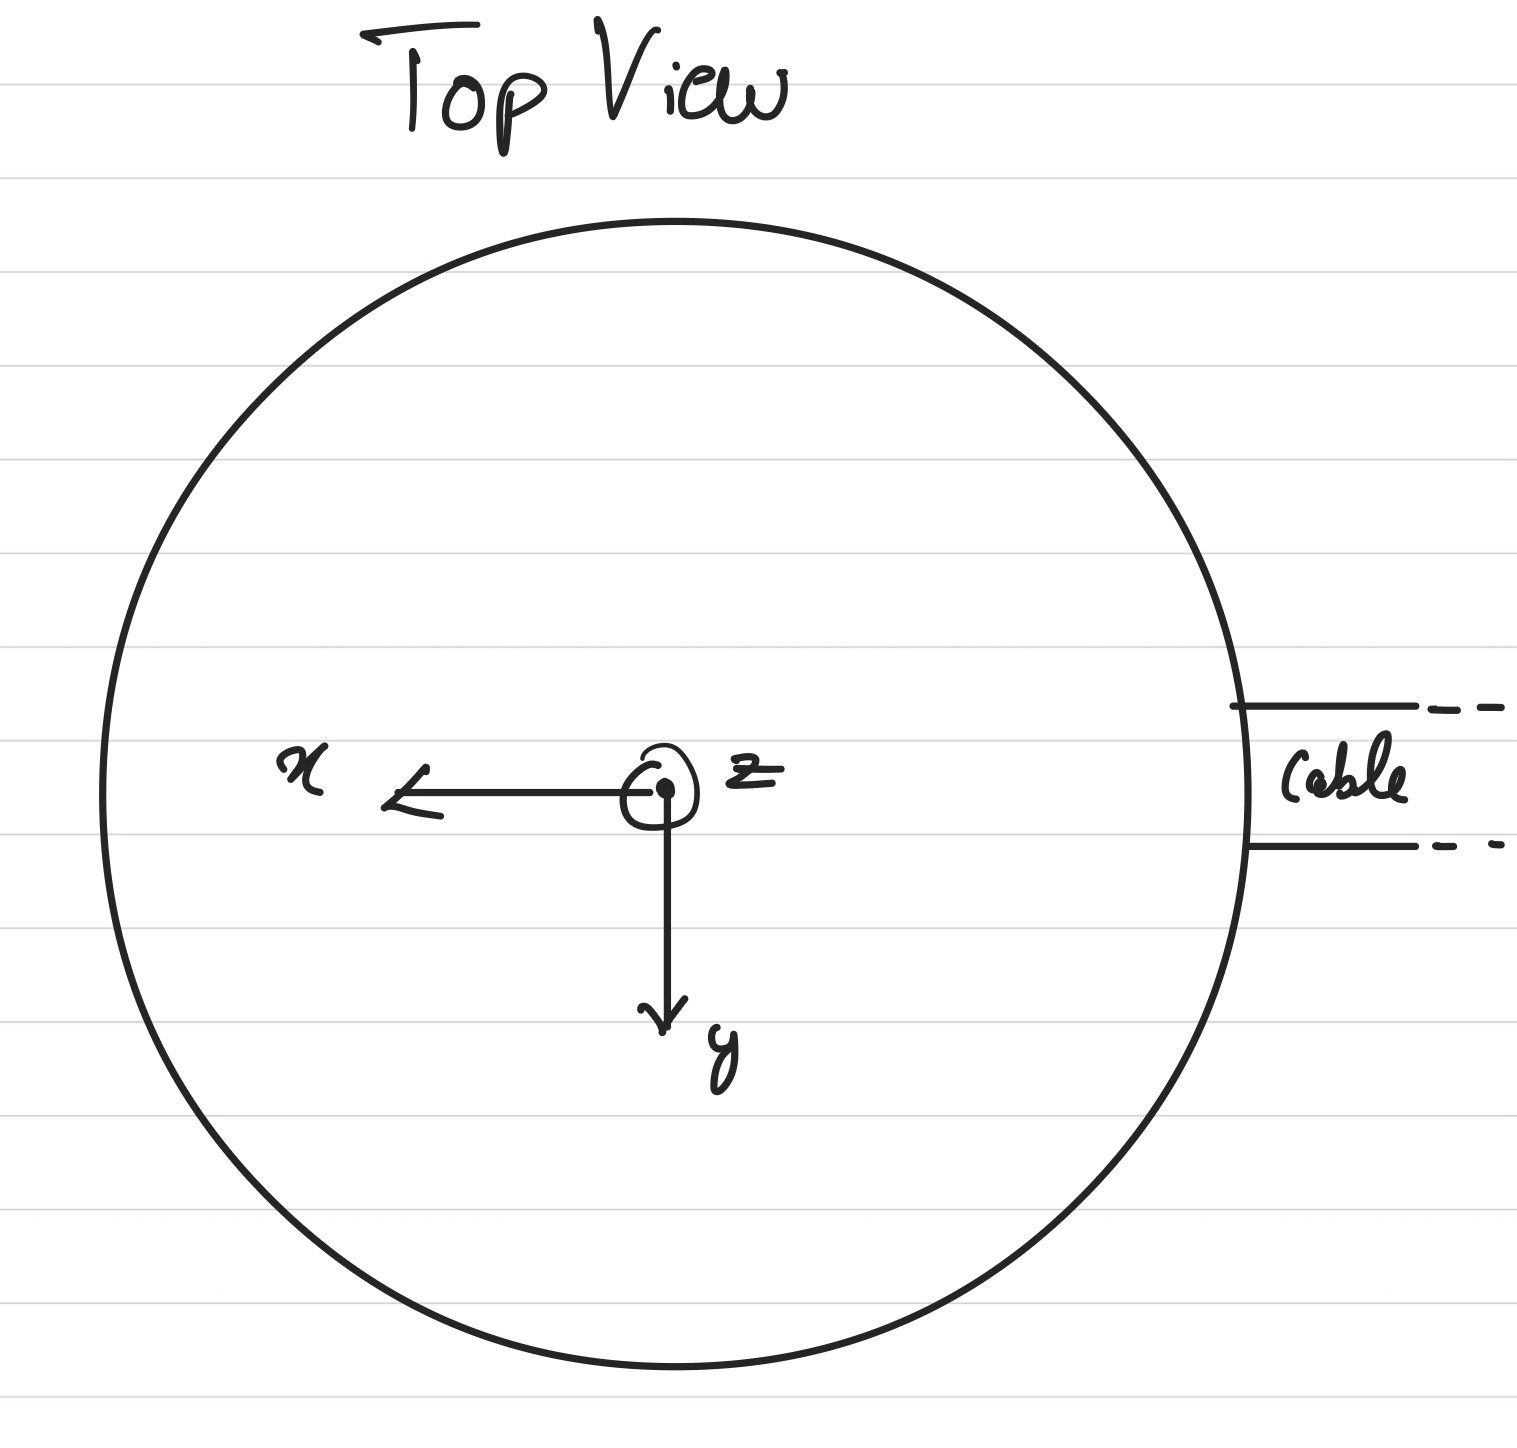 Top View
x
z
Cable
y